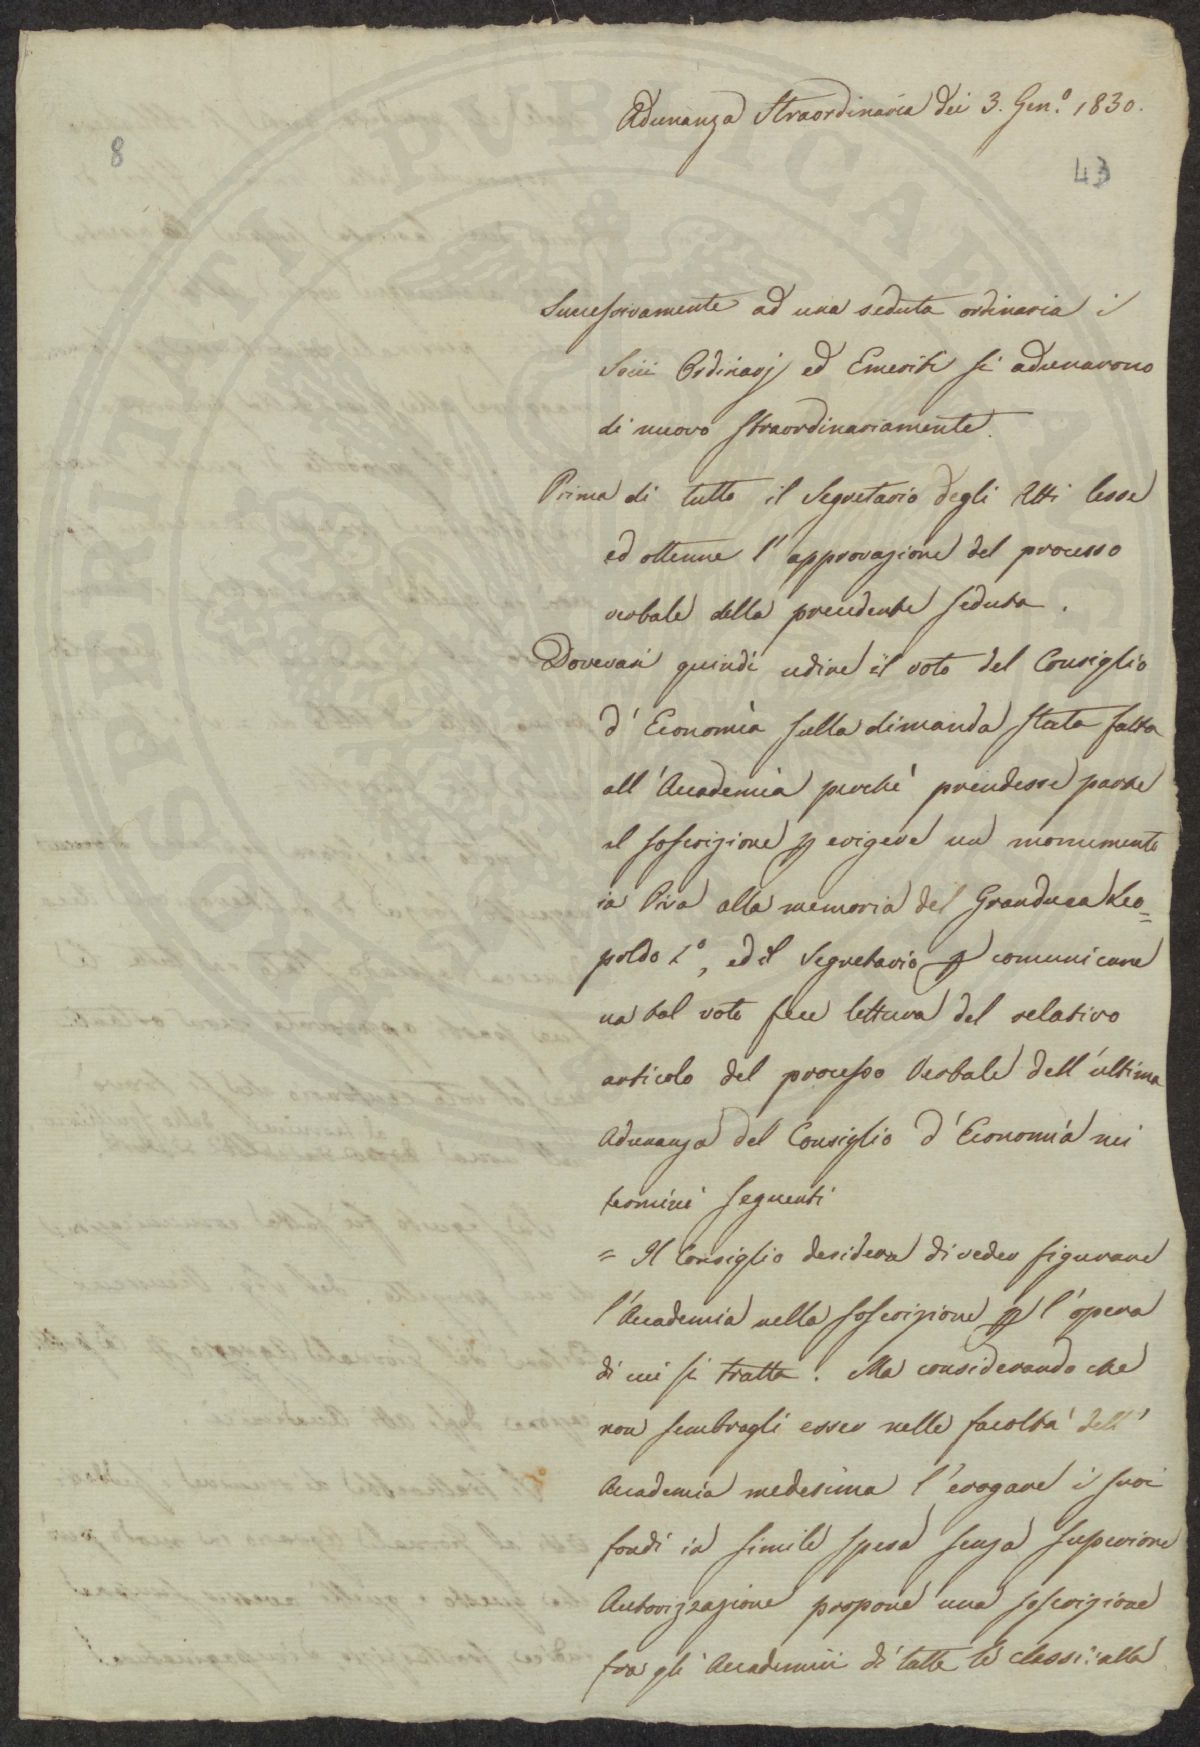 Adunanza Straordinaria dei 3. Gen.º 1830.
8
43
Successivamente ad una seduta ordinaria i
Socii Ordinarj ed Emeriti si adunarono
di nuovo straordinariamente.
Prima di tutto il Segretario degli Atti lesse
ed ottenne l'approvazione del processo
verbale della precedente seduta.
Dovevasi quindi udire il voto del Consiglio
d'Economia sulla dimanda stata fatta
all'Accademia perchè prendesse parte
al soscrizione p erigere un monumento
in Pisa alla memoria del Granduca Leo=
poldo Iº, ed il Segretario p comunicare
un tal voto fece lettura del relativo
articolo del processo Verbale dell'ultima
Adunanza del Consiglio d'Economia nei
termini seguenti
= Il Consiglio desidera di veder figurare
l'Accademia nella soscrizione p l'opera
di cui si tratta. Ma considerando che
non sembragli esser nelle facoltà dell'
Accademia medesima l'erogare i suoi
fondi in simile spesa senza superiore
Autorizzazione propone una soscrizione
fra gli Accademici di tutte le classi: alla